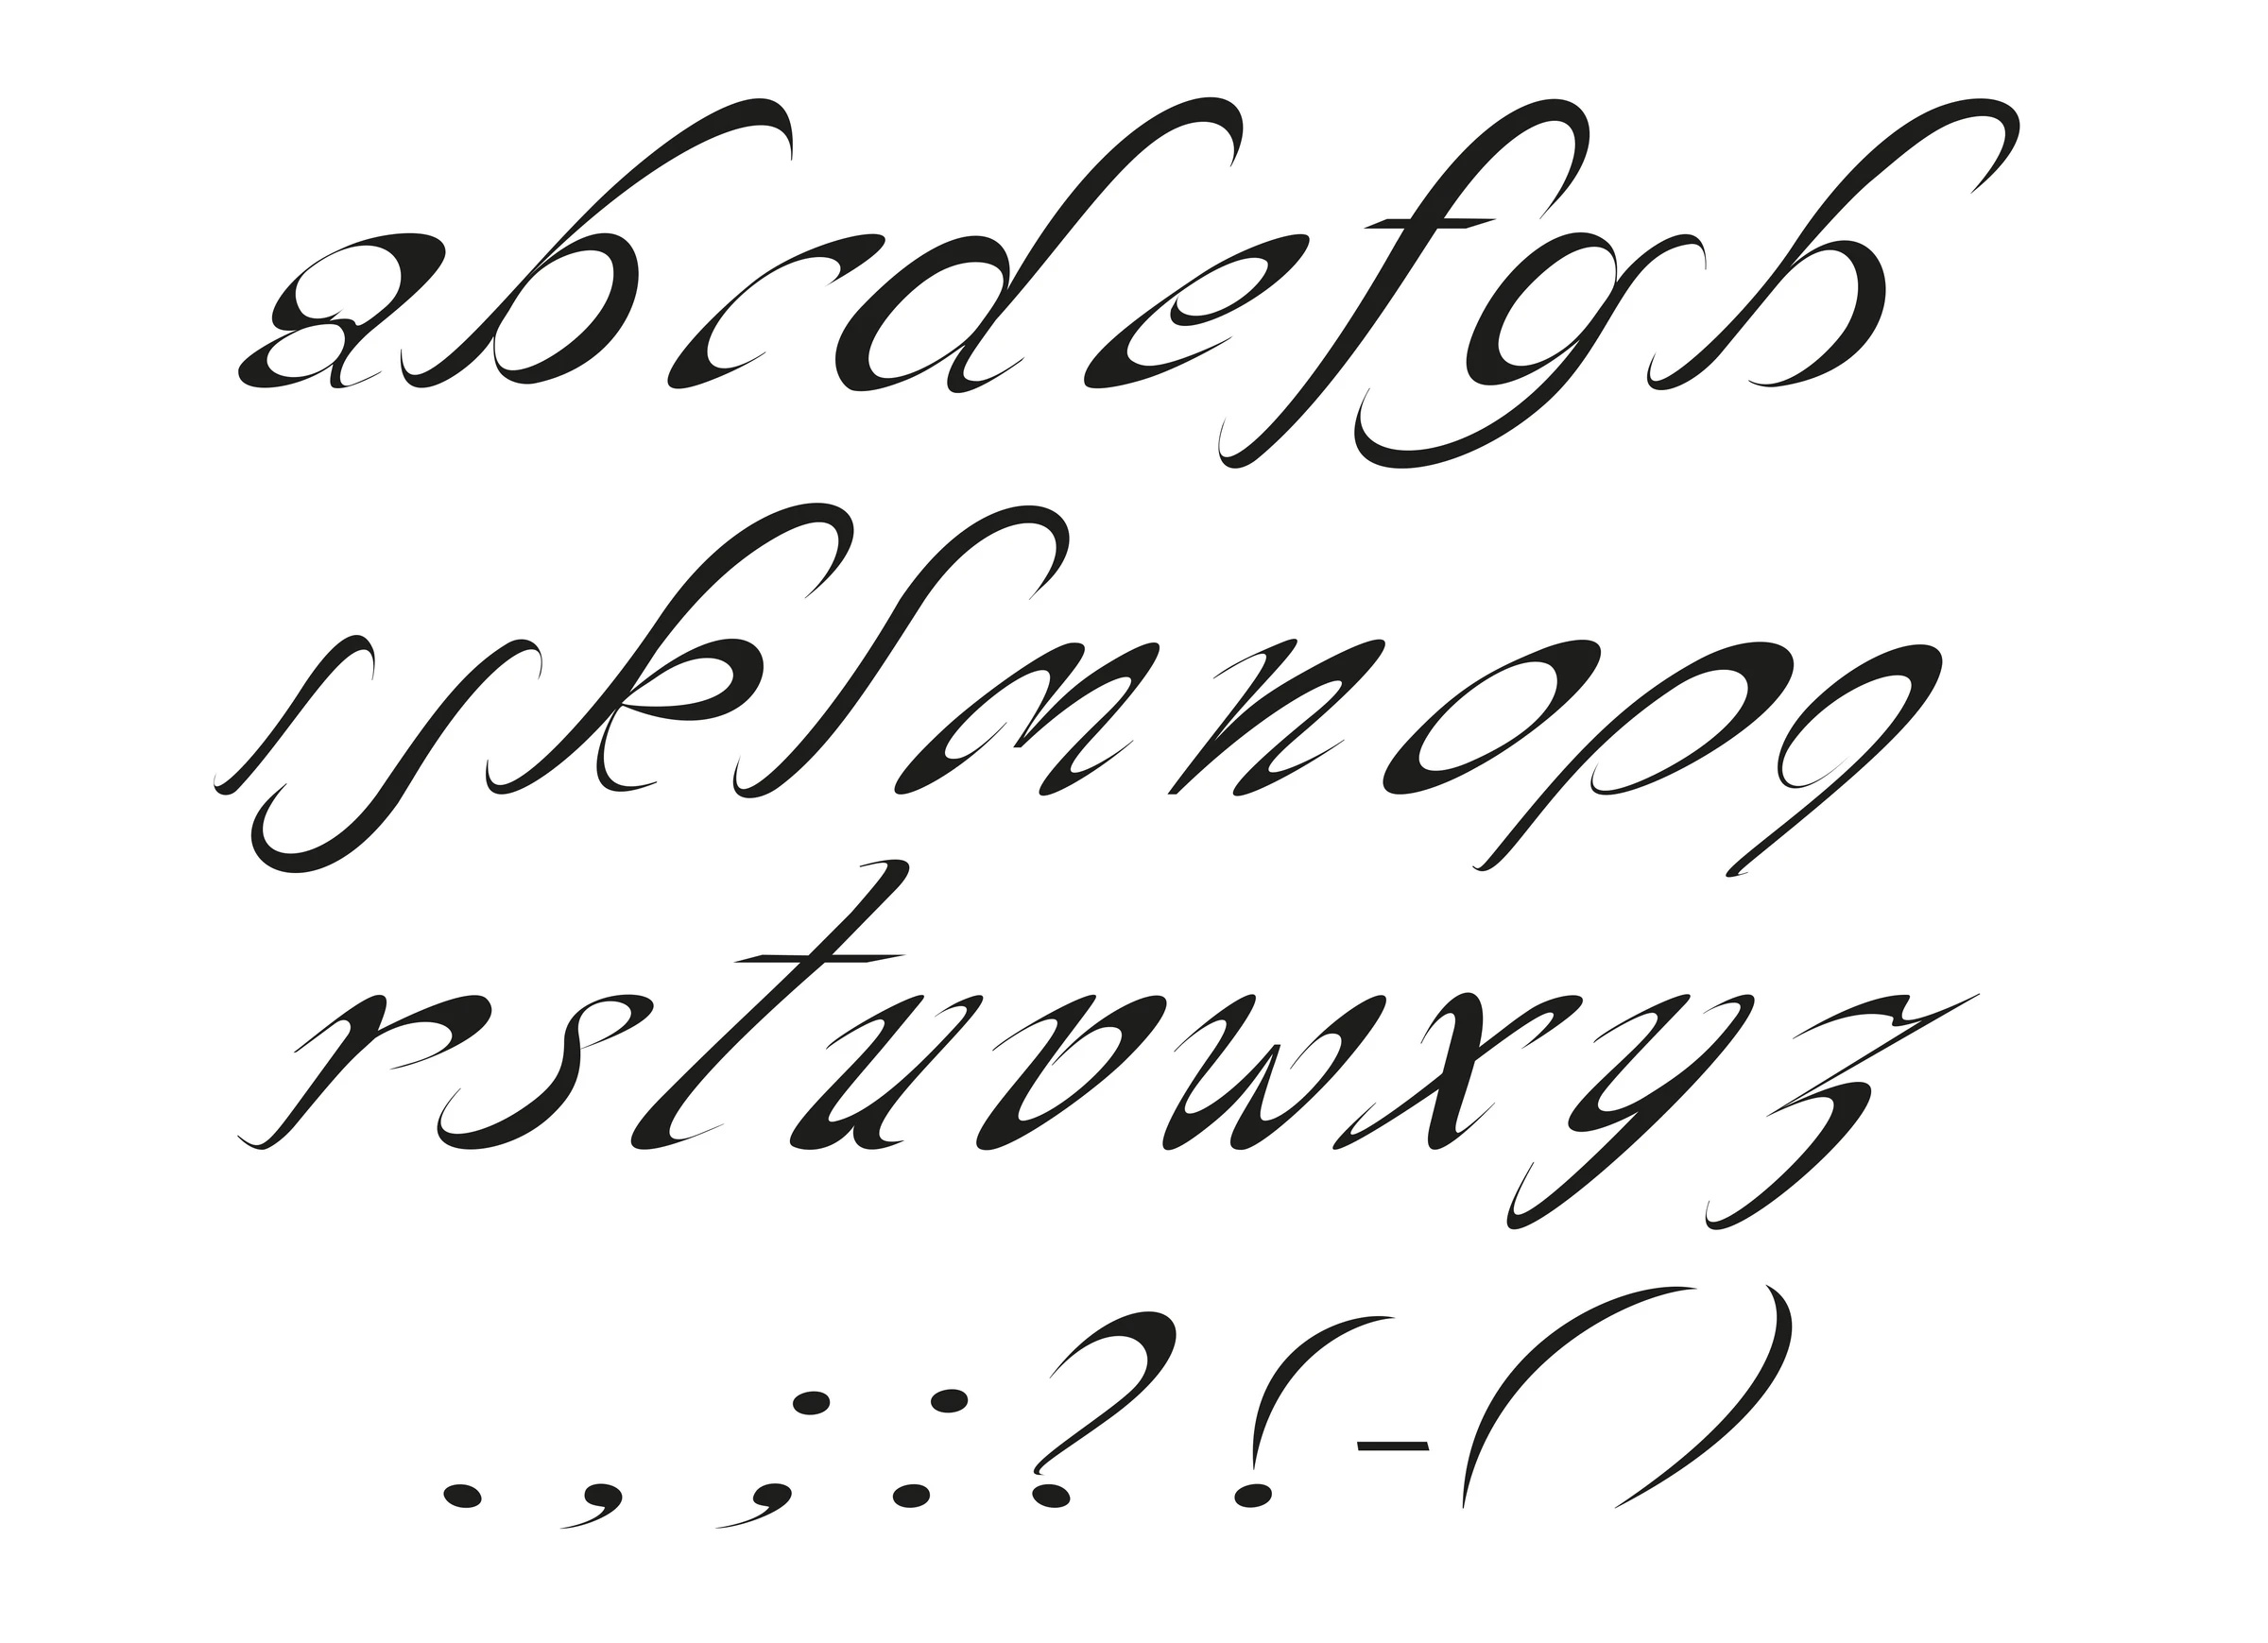 abcdefgh
ijklmnopq
rstuvwxyz
.,;:?!-()